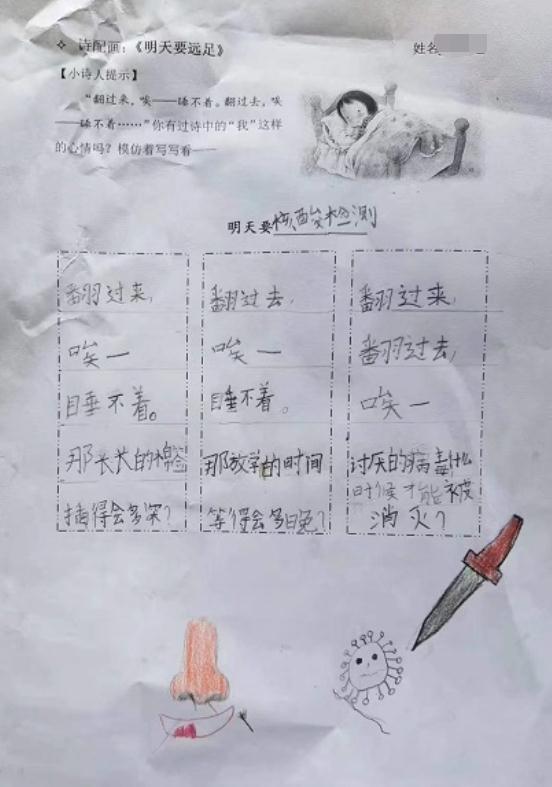 ✧ 诗配画：《明天要远足》
姓名
【小诗人提示】
“翻过来，唉——睡不着。翻过去，唉
——睡不着……”你有过诗中的“我”这样
的心情吗？模仿着写写看——
明天要核酸检测
翻过来，
唉—
睡不着。
那长长的棉签
插得会多深？
翻过去，
唉—
睡不着。
那放学的时间
等得会多晚？
翻过来，
翻过去，
唉—
讨厌的病毒什么
时候才能被
消灭？